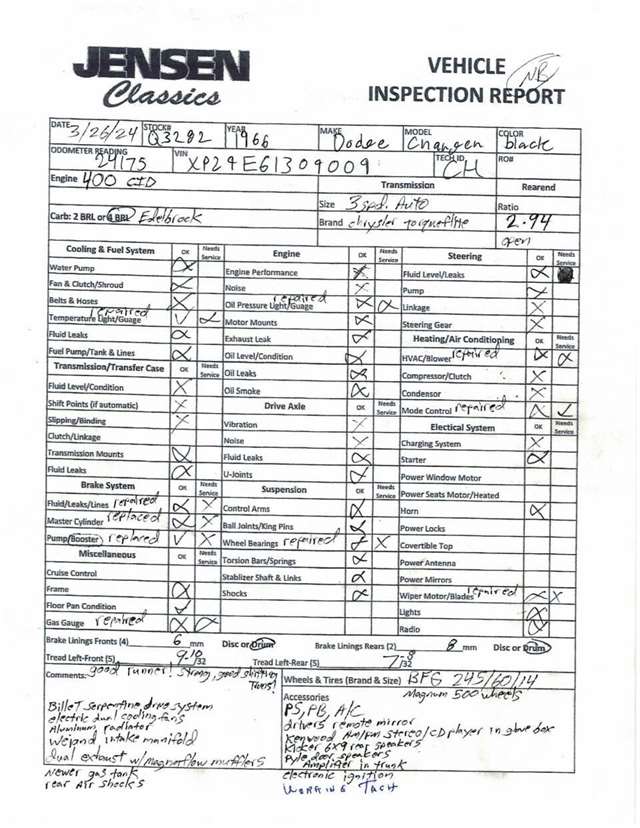 JENSEN
Classics
VEHICLE
NB
INSPECTION REPORT
DATE 3/26/24 STOCK# Q3282 YEAR 1966 MAKE Dodge MODEL Charger COLOR black
ODOMETER READING 29175 VIN XP29E61309009 TECH ID CH RO#
Engine 400 CID Transmission Rearend
Size 3 spd. Auto Ratio
Carb: 2 BRL or 4 BRL Edelbrock Brand chrysler torqueflite 2.94
open
Cooling & Fuel System OK Needs Service Engine OK Needs Service Steering OK Needs Service
Water Pump Engine Performance Fluid Level/Leaks
Fan & Clutch/Shroud Noise Pump
Belts & Hoses Oil Pressure Light/Guage repaired Linkage
Temperature Light/Guage repaired Motor Mounts Steering Gear
Fluid Leaks Exhaust Leak Heating/Air Conditioning OK Needs Service
Fuel Pump/Tank & Lines Oil Level/Condition HVAC/Blower repaired
Transmission/Transfer Case OK Needs Service Oil Leaks Compressor/Clutch
Fluid Level/Condition Oil Smoke Condensor
Shift Points (if automatic) Drive Axle OK Needs Service Mode Control repaired
Slipping/Binding Vibration Electical System OK Needs Service
Clutch/Linkage Noise Charging System
Transmission Mounts Fluid Leaks Starter
Fluid Leaks U-Joints Power Window Motor
Brake System OK Needs Service Suspension OK Needs Service Power Seats Motor/Heated
Fluid/Leaks/Lines repaired Control Arms Horn
Master Cylinder replaced Ball Joints/King Pins Power Locks
Pump/Booster replaced Wheel Bearings repaired Covertible Top
Miscellaneous OK Needs Service Torsion Bars/Springs Power Antenna
Cruise Control Stablizer Shaft & Links Power Mirrors
Frame Shocks Wiper Motor/Blades repaired
Floor Pan Condition Lights
Gas Gauge repaired Radio
Brake Linings Fronts (4) 6 mm Disc or Drum Brake Linings Rears (2) 8 mm Disc or Drum
Tread Left-Front (5) 9-10/32 Tread Left-Rear (5) 7-8/32
Comments: good runner! strong, good shifting trans!
Wheels & Tires (Brand & Size) BFG 245/60/14
Magnum 500 wheels
Billet serpentine drive system
electric dual cooling fans
Aluminum radiator
Weiand intake manifold
dual exhaust w/Magnaflow mufflers
Newer gas tank
rear Air shocks
Accessories
PS, PB, A/C
drivers remote mirror
Kenwood Am/Fm stereo/CD player in glove box
Kicker 6x9 rear speakers
Pyle door speakers
Amplifier in trunk
electronic ignition
WORKING TACH